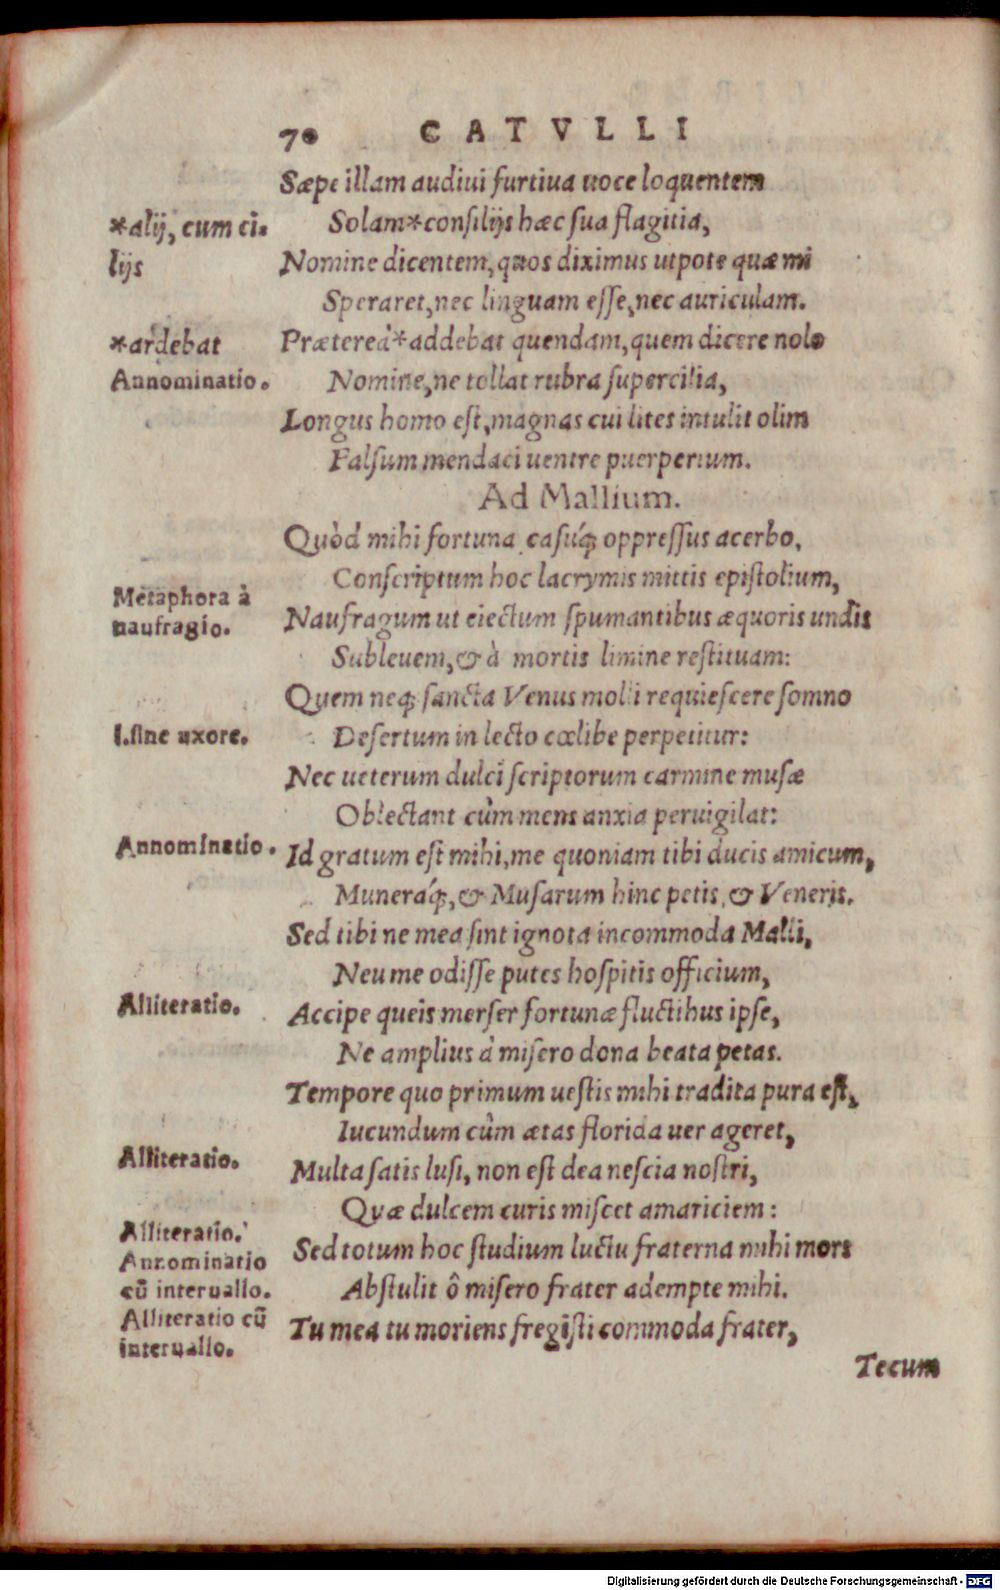 70 CATVLLI
Sæpe illam audiui furtiua uoce loquentem
*alij, cum ci-
lijs
Solam*consilijs hæc sua flagitia,
Nomine dicentem, quos diximus utpote quæ mi
Speraret, nec linguam esse, nec auriculam.
*ardebat
Prætereà*addebat quendam, quem dicere nolo
Annominatio.
Nomine, ne tollat rubra supercilia,
Longus homo est, magnas cui lites intulit olim
Falsum mendaci uentre puerperium.
Ad Mallium.
Quòd mihi fortuna casúq; oppressus acerbo,
Conscriptum hoc lacrymis mittis epistolium,
Metaphora à
naufragio.
Naufragum ut eiectum spumantibus æquoris undis
Subleuem, & à mortis limine restituam:
Quem neq; sancta Venus molli requiescere somno
i. sine uxore.
Desertum in lecto cœlibe perpetitur:
Nec ueterum dulci scriptorum carmine musæ
Oblectant cùm mens anxia peruigilat:
Annominatio.
Id gratum est mihi, me quoniam tibi ducis amicum,
Muneráq;, & Musarum hinc petis, & Veneris.
Sed tibi ne mea sint ignota incommoda Malli,
Neu me odisse putes hospitis officium,
Alliteratio.
Accipe queis merser fortunæ fluctibus ipse,
Ne amplius à misero dona beata petas.
Tempore quo primum uestis mihi tradita pura est,
Iucundum cùm ætas florida uer ageret,
Alliteratio.
Multa satis lusi, non est dea nescia nostri,
Quæ dulcem curis miscet amariciem:
Alliteratio.
Annominatio
cũ interuallo.
Alliteratio cũ
interuallo.
Sed totum hoc studium luctu fraterna mihi mors
Abstulit ô misero frater adempte mihi.
Tu mea tu moriens fregisti commoda frater,
Tecum
Digitalisierung gefördert durch die Deutsche Forschungsgemeinschaft - DFG